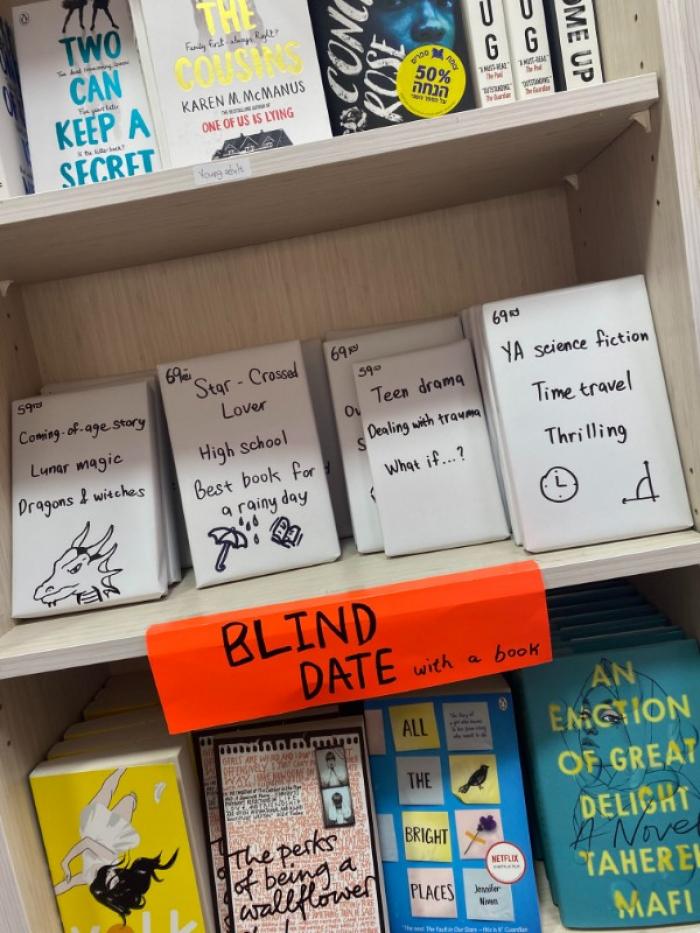 TWO
CAN
KEEP A
SECRET
THE
Family First - always. Right?
COUSINS
KAREN M. McMANUS
THE BESTSELLING AUTHOR OF
ONE OF US IS LYING
ROSE
50%
הנחה
UG
"A MUST-READ."
The Pool
"OUTSTANDING."
The Guardian
UG
"A MUST-READ."
The Pool
"OUTSTANDING."
The Guardian
OME UP
Young adults
59₪
Coming-of-age story
Lunar magic
Dragons & witches
69₪
Star-Crossed
Lover
High school
Best book for
a rainy day
69₪
59₪
Teen drama
Dealing with trauma
What if...?
69₪
YA science fiction
Time travel
Thrilling
BLIND
DATE with a book
The perks
of being a
wallflower
ALL
THE
BRIGHT
PLACES
NETFLIX
Jennifer
Niven
AN
EMOTION
OF GREAT
DELIGHT
A Novel
TAHEREH
MAFI